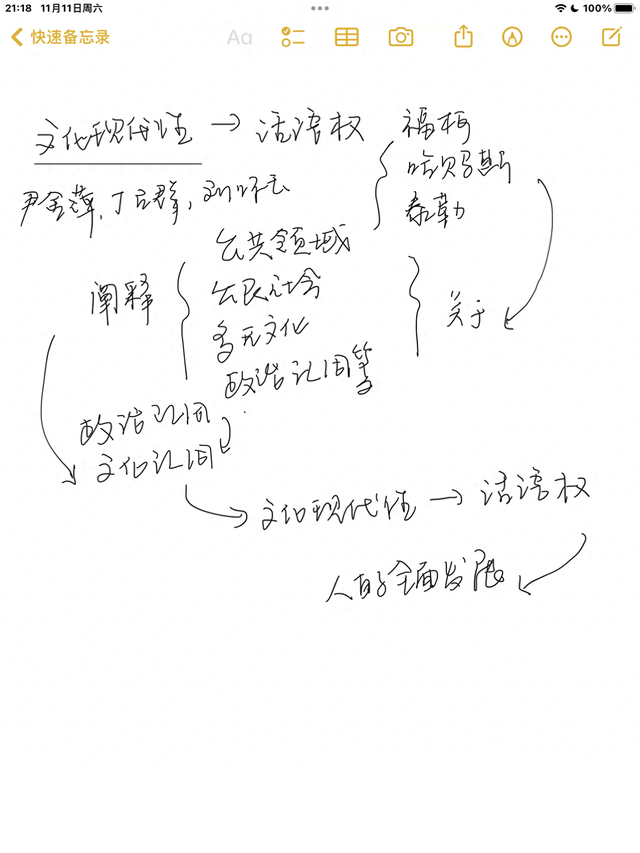 21:18 11月11日周六 100%
快速备忘录
Aa
文化现代性 → 话语权
福柯
哈贝马斯
泰勒
尹金萍, 丁立群,
阐释
公共领域
公民社会
多元文化
政治认同等
关于
政治认同
文化认同
文化现代性 → 话语权
人的全面发展